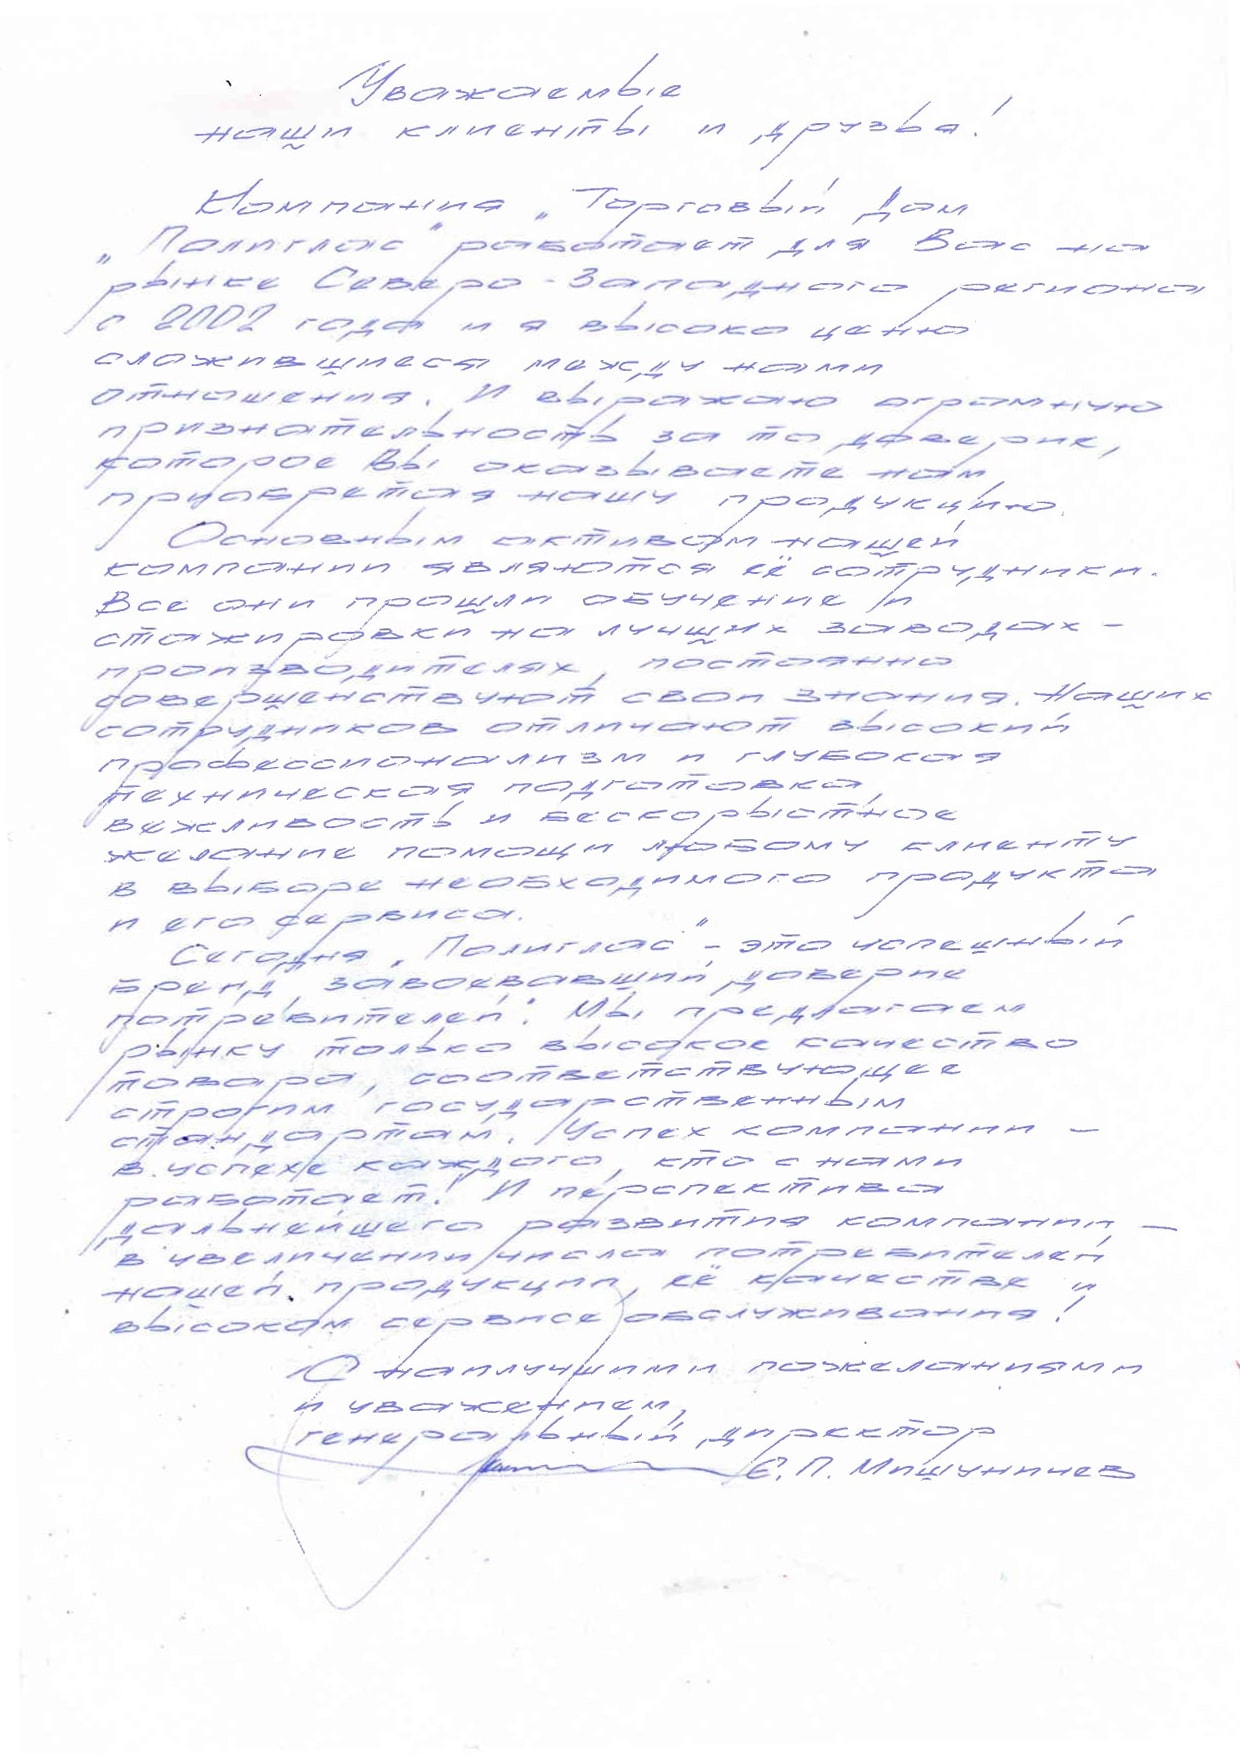 Уважаемые
наши клиенты и друзья!
Компания „Торговый Дом
„Полиглас" работает для Вас на
рынке Северо-Западного региона
с 2002 года и я высоко ценю
сложившиеся между нами
отношения. И выражаю огромную
признательность за то доверие,
которое Вы оказываете нам,
приобретая нашу продукцию.
Основным активом нашей
компании являются её сотрудники.
Все они прошли обучение и
стажировки на лучших заводах-
производителях, постоянно
совершенствуют свои знания. Наших
сотрудников отличают высокий
профессионализм и глубокая
техническая подготовка,
вежливость и бескорыстное
желание помощи любому клиенту
в выборе необходимого продукта
и его сервиса.
Сегодня „Полиглас" - это успешный
бренд, завоевавший доверие
потребителей. Мы предлагаем
рынку только высокое качество
товара, соответствующее
строгим государственным
стандартам. Успех компании -
в успехе каждого, кто с нами
работает! И перспектива
дальнейшего развития компании -
в увеличении числа потребителей
нашей продукции, её качестве и
высоком сервисе обслуживания!
С наилучшими пожеланиями
и уважением,
генеральный директор
Е.П. Мишуничев